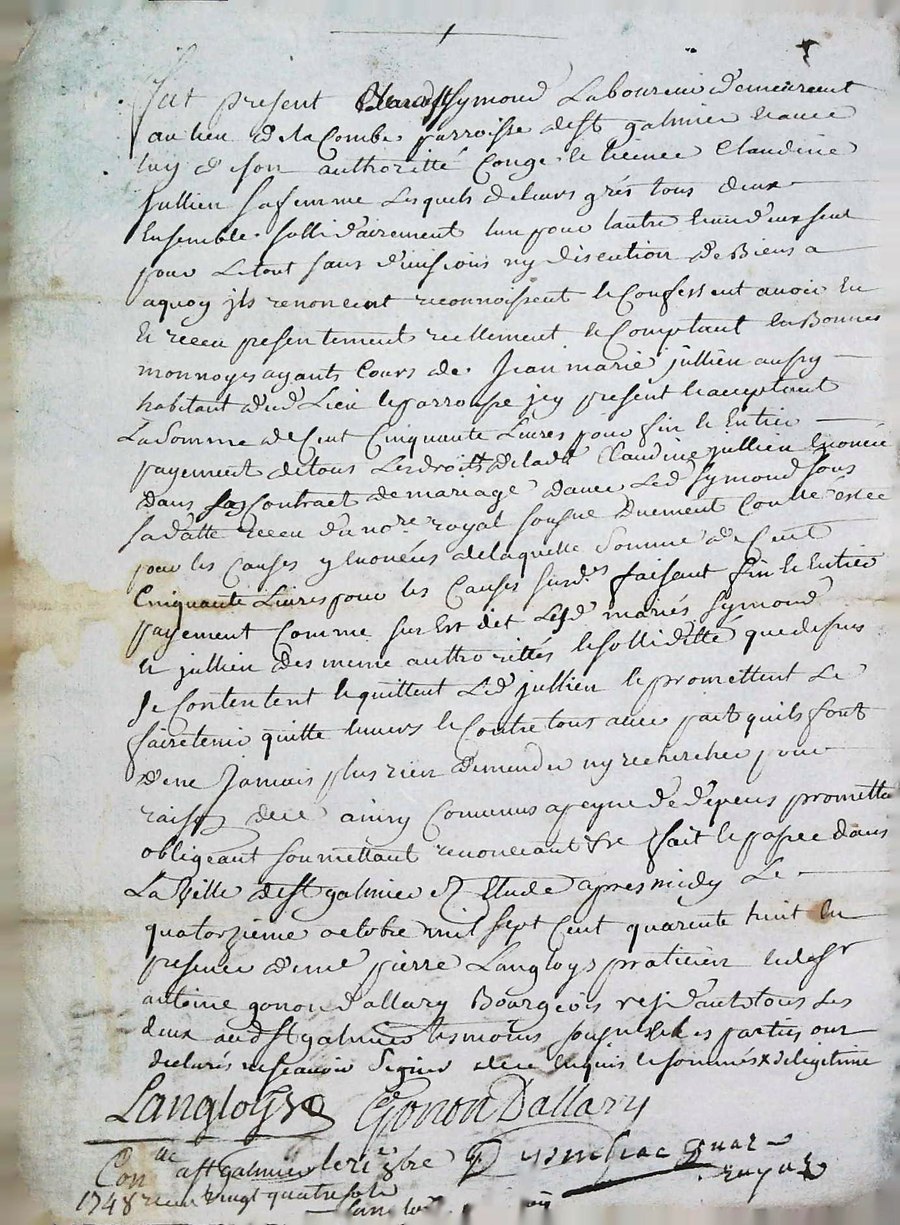 fut présent Symond Laboureur demeurant
au lieu de la Combe parroisse de St galmier lequel
luy et son authorité Congé et licence Claudine
jullien sa femme Lesquels de leurs grés tous deux
Ensemble solidairement lun pour lautre lun d'eux seul
pour Le tout sans division ny discution de Biens a
aquoy jls renoncent reconnoissent et Confessent avoir Eu
Et receu présentement reellement et Comptant En Bonnes
monnoyes ayants Cours de Jean marie jullien aussy
habitant dud Lieu et parroisse jcy présent et acceptant
La Somme de Cent Cinquante Livres pour fin et Entier
payement de tous Les droits de lade Claudine jullien Enoncé
Dans contract de mariage d'avec Led Symond sous
sa datte receu du nore royal sousné Duement Contrôlé
pour les Causes y Enoncées de laquelle Somme de Cent
Cinquante Livres pour les Causes susdes faisant fin et Entier
payement Comme sus Est dit Lesd mariés Symond
et jullien des meme authorittés et solliditté que dessus
se Contentent et quittent Led jullien et promettent Le
faire tenir quitte Envers et Contre tous avec pait quils font
de ne Jamais plus rien demander ny rechercher pour
raison de ce ainsy Convenus a peyne de depens promettt
obligeant soumettant renonceant &re fait et passé dans
La Ville de St galmier Etude apres midy Le
quatorzieme octobre mil sept Cent quarente huit En
presence de me pierre Langloys praticien et de Sr
antoine gonon Dallary Bourgeois résidants tous Les
deux aud St galmier tesmoins sousnés et les parties ont
declarés ne scavoir Signer de ce Enquis et sommés
Langloys Gonon Dallary
Conlé a St galmier le 8bre
1748 receu vingt quatre sols royal